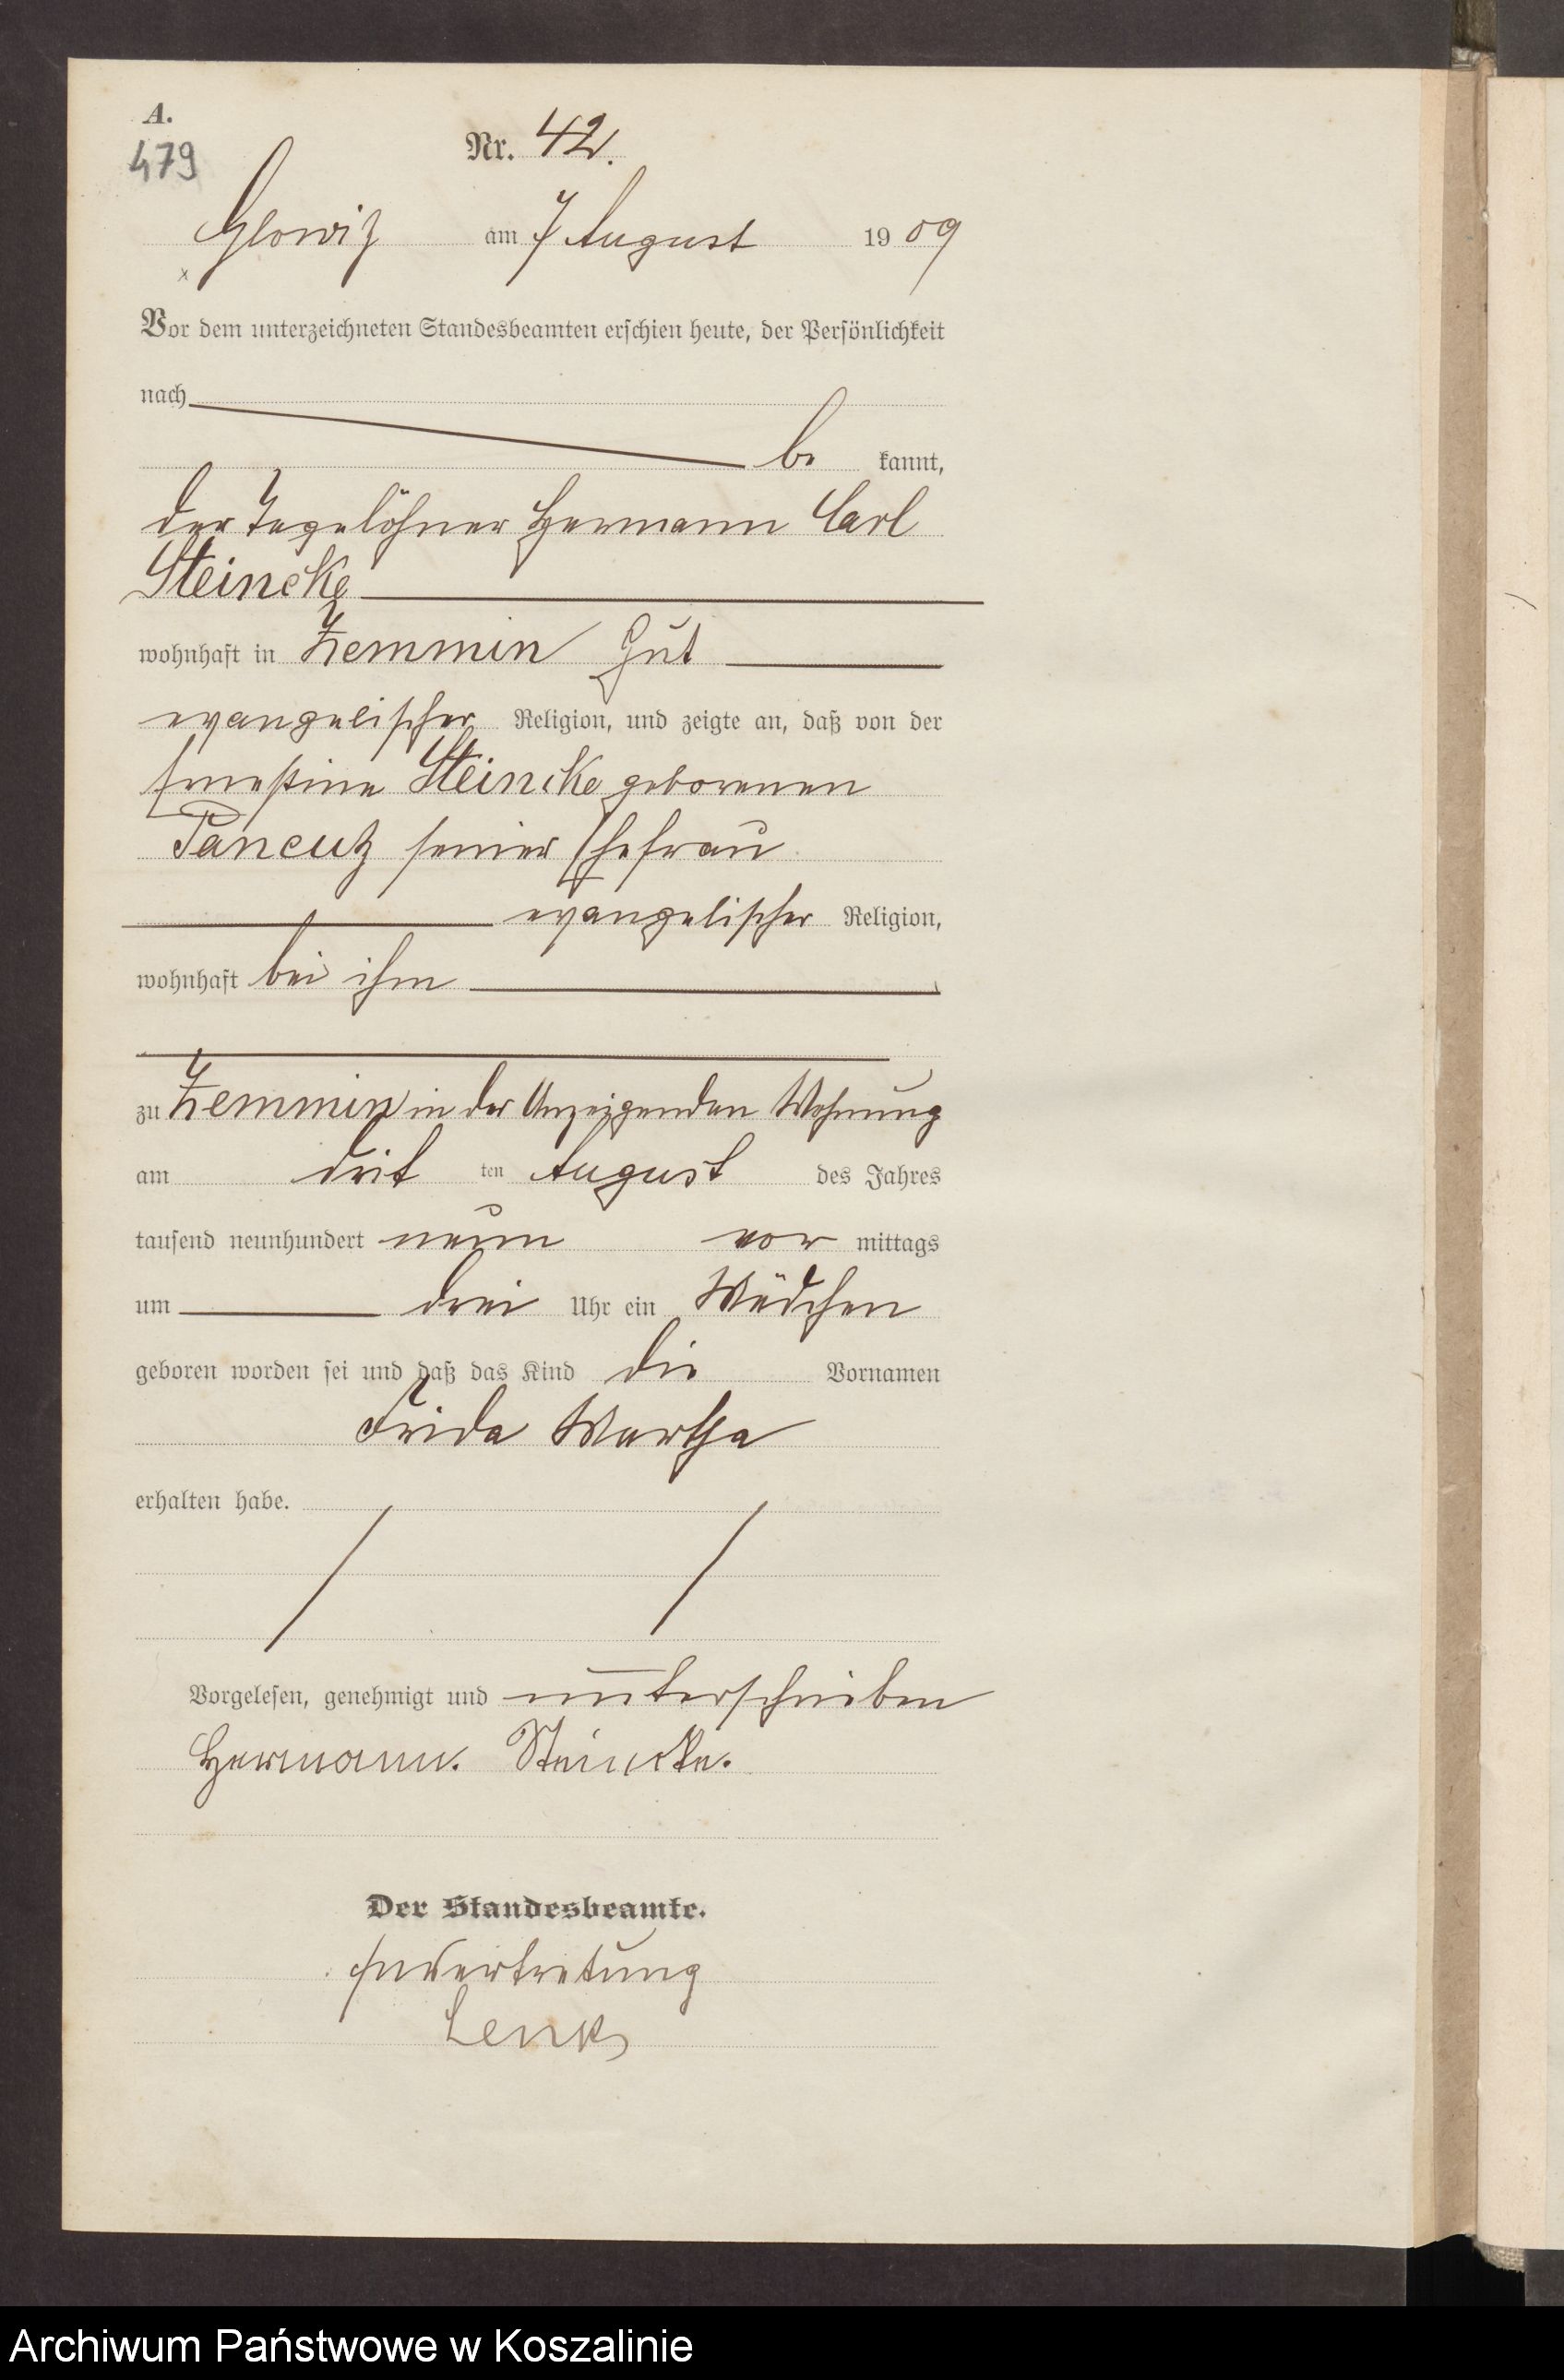 A.
479
Nr. 42.
Glowitz am 7 August 1909
Vor dem unterzeichneten Standesbeamten erschien heute, der Persönlichkeit
nach
be kannt,
der Tagelöhner Hermann Carl
Steincke
wohnhaft in Zemmin Gut
evangelischer Religion, und zeigte an, daß von der
Ernestine Steincke geborenen
Pancutz seiner Ehefrau
evangelischer Religion,
wohnhaft bei ihm
zu Zemmin in der Anzeigenden Wohnung
am drit ten August des Jahres
tausend neunhundert neun vor mittags
um drei Uhr ein Mädchen
geboren worden sei und daß das Kind die Vornamen
Frida Martha
erhalten habe.
Vorgelesen, genehmigt und unterschrieben
Hermann. Steincke.
Der Standesbeamte.
In Vertretung
Lenk
Archiwum Państwowe w Koszalinie